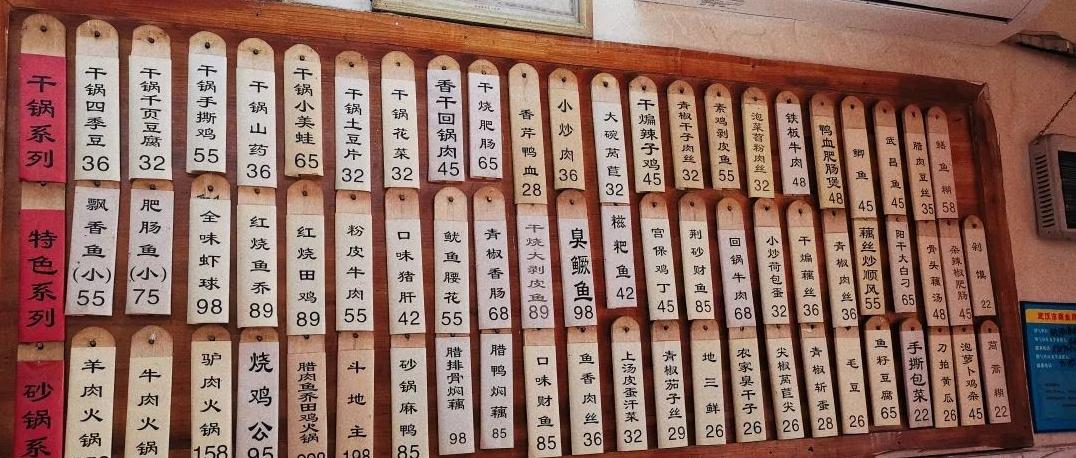 干锅系列
干锅四季豆 36
干锅千页豆腐 32
干锅手撕鸡 55
干锅山药 36
干锅小美蛙 65
干锅土豆片 32
干锅花菜 32
香干回锅肉 45
干烧肥肠 65
香芹鸭血 28
小炒肉 36
大碗莴苣 32
干煸辣子鸡 45
青椒干子肉丝 32
素鸡剥皮鱼 55
泡菜苕粉肉丝 32
铁板牛肉 48
鸭血肥肠煲 48
鲫鱼 45
武昌鱼 45
腊肉豆丝 35
鳝鱼糊 58
特色系列
飘香鱼(小) 55
肥肠鱼(小) 75
全味虾球 98
红烧鱼乔 89
红烧田鸡 89
粉皮牛肉 55
口味猪肝 42
鱿鱼腰花 55
青椒香肠 68
干烧大剥皮鱼 89
臭鳜鱼 98
糍粑鱼 42
宫保鸡丁 45
荆砂财鱼 85
回锅牛肉 68
小炒荷包蛋 32
干煸藕丝 36
青椒肉丝 36
藕丝炒顺风 55
阳干大白刁 65
骨头藕汤 48
杂辣椒肥肠 45
剁馍 22
砂锅系
羊肉火锅
牛肉火锅
驴肉火锅 158
烧鸡公 95
腊肉鱼乔田鸡火锅
斗地主 198
砂锅麻鸭 85
腊排骨焖藕 98
腊鸭焖藕 85
口味财鱼 85
鱼香肉丝 36
上汤皮蛋汗菜 32
青椒茄子丝 29
地三鲜 26
农家臭干子 26
尖椒莴苣尖 26
青椒斩蛋 28
毛豆 26
鱼籽豆腐 65
手撕包菜 22
刀拍黄瓜 26
泡萝卜鸡杂 45
莴蒿糊 22